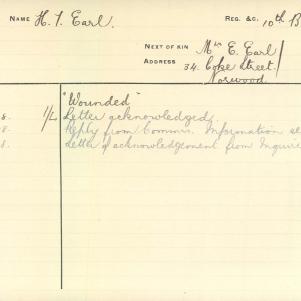 NAME H. T. Earl. REG. &C. 10th B
NEXT OF KIN Mrs E. Earl
ADDRESS 34. Coke Street,
Norwood.
"Wounded"
8. 1/L Letter acknowledged.
8. Reply from Commr. Information se
8. Letter of acknowledgement from Inquire